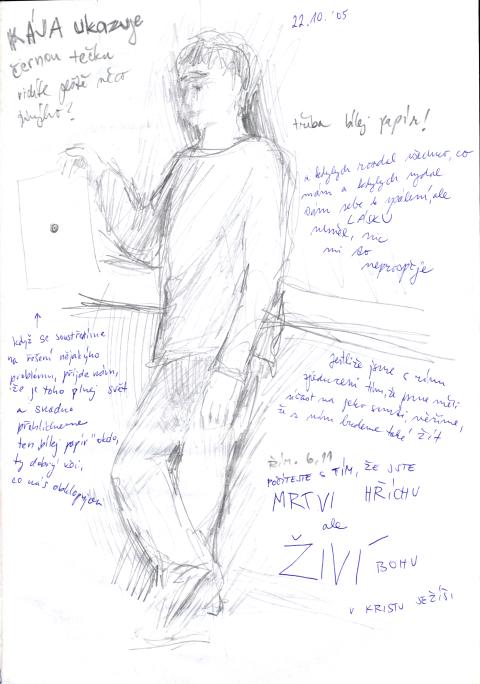 KÁVA ukazuje
černou tečku
vidíte ještě něco
jinýho?
22.10.'05
třeba bílej papír!
a kdybych rozdal všechno, co
mám a kdybych vydal
sám sebe k spálení, ale
LÁSKU
neměl, nic
mi to
neprospěje
když se soustředíme
na řešení nějakýho
problému, přijde nám,
že je toho plnej svět
a snadno
přehlídneme
ten "bílej papír" okolo,
ty dobrý věci,
co nás obklopujou
Jestliže jsme s ním
sjednoceni tím, že jsme měli
účast na jeho smrti, věříme,
že s ním budeme také žít
ŘÍM. 6,11
POČÍTEJTE S TÍM, ŽE JSTE
MRTVI HŘÍCHU
ale
ŽIVÍ BOHU
V KRISTU JEŽÍŠI